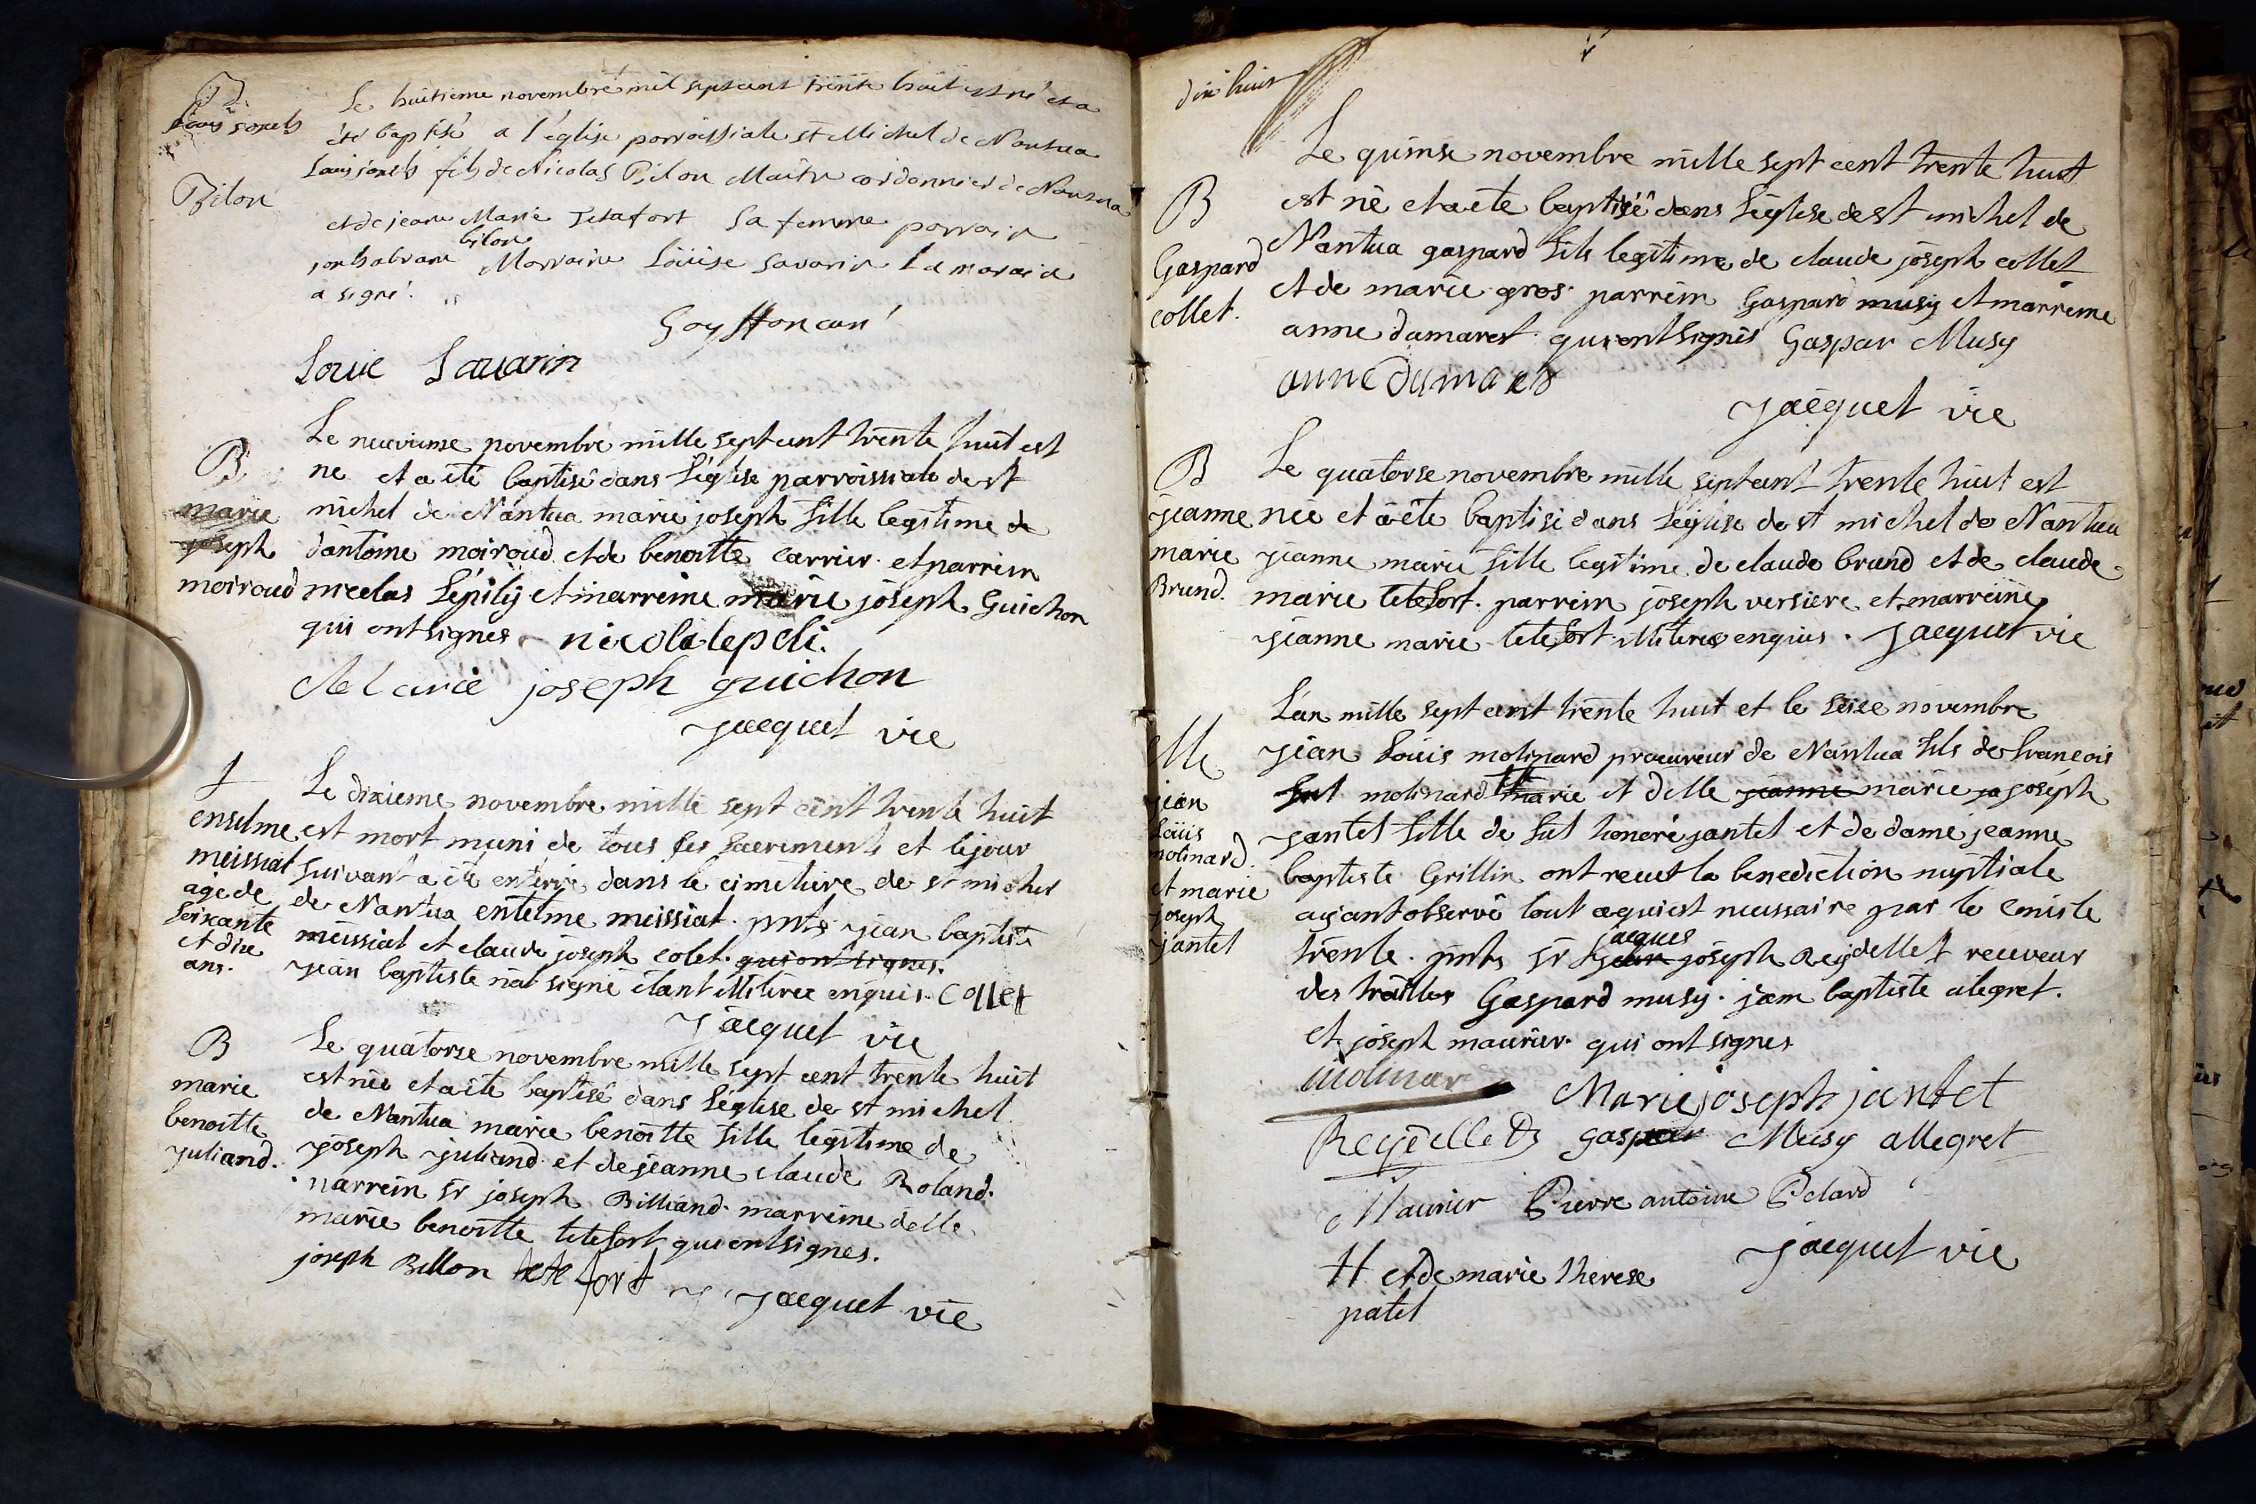 B
Louis joseph
Pilon
Le huitieme novembre mil sept cent trente huit est né et a
été baptisé a l'église parroissiale st Michel de Nantua
Louis joseph fils de Nicolas Pilon Maitre cordonnier de Nantua
et de jeanne Marie Tetafort sa femme parrain
pilon
Marraine Loüise Savarin La maraine
a signé.
Louie Sauarin
B
marie
joseph
moiroud
Le neuvieme novembre mille sept cent trente huit est
ne et a eté baptisé dans L'église parroissiale de st
michel de Nantua marie joseph fille legitime de
d'antoine moiroud et de benoitte carrier et parrein
nicolas Lépily et marreine marie joseph Guichon
qui ont signes nicola lepeli.
Marie joseph guichon
jacquet vic
†
enselme
meissiat
agé de
soixante
et dix
ans.
Le dixieme novembre mille sept cent trente huit
est mort muni de tous ses sacrements et le jour
suivant a été enterré dans le cimetiere de st michel
de Nantua entelme meissiat. pnts jean baptiste
meissiat et claude joseph colet. qui ont signes.
jean baptiste n'at signé étant illiteree enquis. Collet
jacquet vic
B
marie
benoitte
juliand.
Le quatorse novembre mille sept cent trente huit
est née et a été baptisé dans L'église de st michel
de Nantua marie benoitte fille legitime de
joseph juliand et de jeanne claude Roland.
parrein sr joseph Billiand. marreine delle
marie benoitte tetefort qui ont signes.
joseph Billon tete fort jacquet vic
dix huit
B
Gaspard
collet.
Le quinse novembre mille sept cent trente huit
est né et a été baptisé dans L'église de st michel de
Nantua gaspard fils legitime de claude joseph collet
et de marie gros. parrein Gaspard musy et marreine
anne dumaret qui ont signés Gaspar Musy
anne dumares
jacquet vic
B
jeanne
marie
Brund.
Le quatorse novembre mille sept cent trente huit est
née et a été baptisé dans L'église de st michel de Nantua
jeanne marie fille legitime de claude brund et de claude
marie tetefort. parrein joseph versiere et marreine
jeanne marie tetefort illiteres enquis. jacquet vic
M
jean
Loüis
molinard.
et marie
joseph
jantet
L'an mille sept cent trente huit et le seize novembre
jean Loüis molinard procureur de Nantua fils de francois
fut molinard # marie et delle jeanne marie jo joseph
jantet fille de fut honoré jantet et de dame jeanne
baptiste Grillin ont receut la benediction nuptiale
ayant observé tout ce qui est necessaire par le consile
jacques
trente. pnts sr jean joseph Reydellet receveur
des traittes Gaspard musy. jean baptiste alegret.
et joseph maurier qui ont signes
molinar
Marie joseph jantet
Reydellets gaspar Musy allegret
Maurier Pierre antoine Pelard
jacquet vic
# et de marie therese
patel